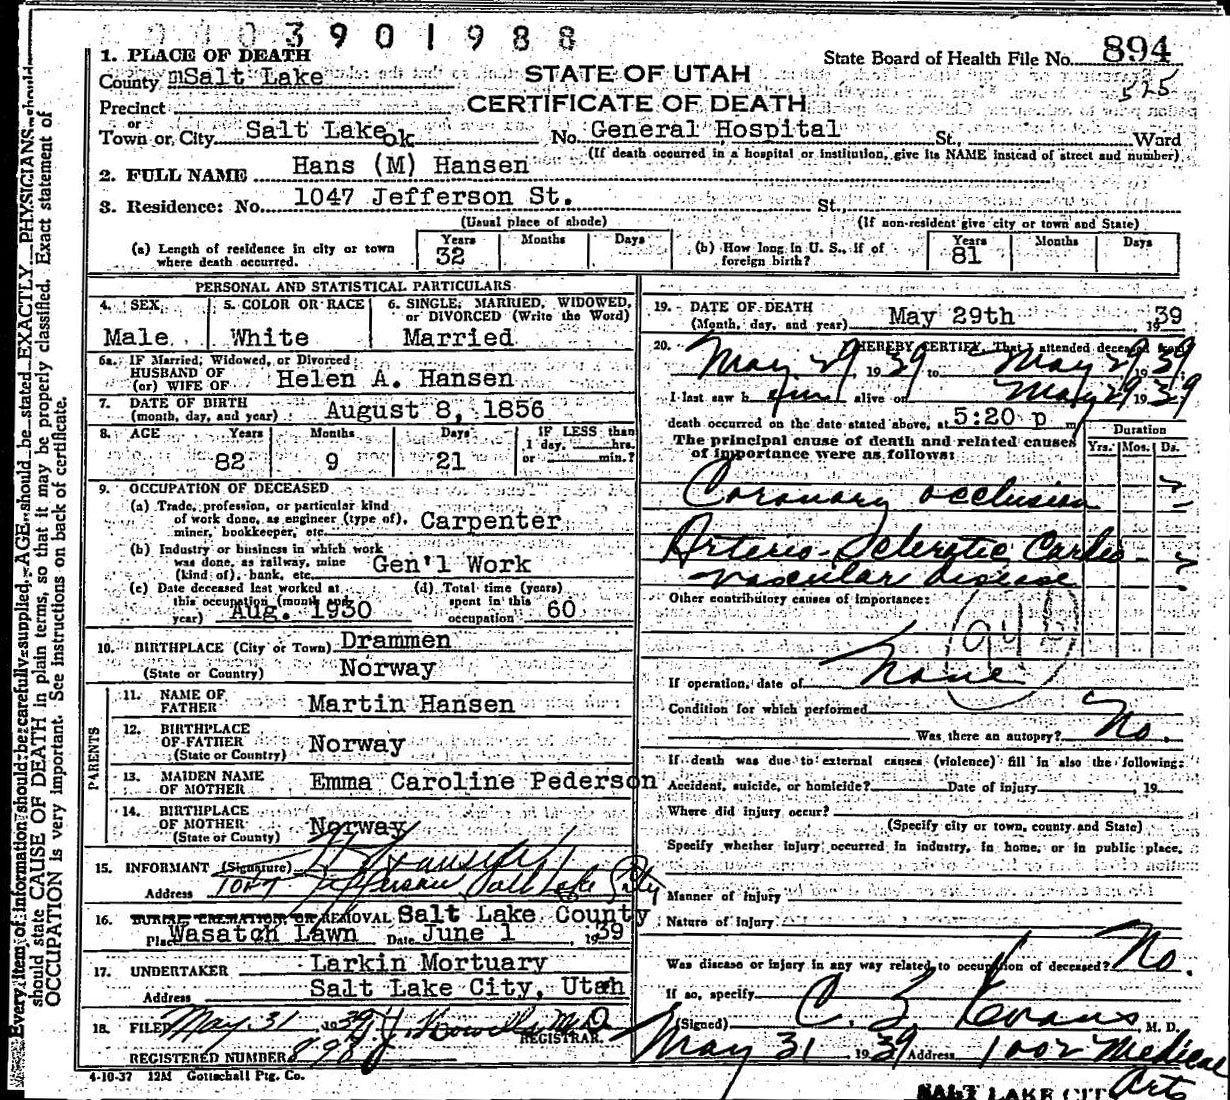 3901988
1. PLACE OF DEATH
County Salt Lake
State Board of Health File No. 894
525
STATE OF UTAH
CERTIFICATE OF DEATH
Precinct
or
Town or City Salt Lake ok No. General Hospital St., Ward
(If death occurred in a hospital or institution, give its NAME instead of street and number)
2. FULL NAME Hans (M) Hansen
3. Residence: No. 1047 Jefferson St. St.,
(Usual place of abode) (If non-resident give city or town and State)
(a) Length of residence in city or town where death occurred. Years 32 Months Days
(b) How long in U. S., if of foreign birth? Years 81 Months Days
PERSONAL AND STATISTICAL PARTICULARS
4. SEX 5. COLOR OR RACE 6. SINGLE, MARRIED, WIDOWED, or DIVORCED (Write the Word)
Male White Married
6a. IF Married, Widowed, or Divorced
HUSBAND OF
(or) WIFE OF Helen A. Hansen
7. DATE OF BIRTH
(month, day, and year) August 8, 1856
8. AGE Years Months Days IF LESS than
1 day, hrs.
or min.?
82 9 21
9. OCCUPATION OF DECEASED
(a) Trade, profession, or particular kind
of work done, as engineer (type of),
miner, bookkeeper, etc. Carpenter
(b) Industry or business in which work
was done, as railway, mine
(kind of), bank, etc. Gen'l Work
(c) Date deceased last worked at
this occupation (month and
year) Aug. 1930
(d) Total time (years)
spent in this
occupation 60
10. BIRTHPLACE (City or Town) Drammen
(State or Country) Norway
PARENTS
11. NAME OF
FATHER Martin Hansen
12. BIRTHPLACE
OF FATHER
(State or Country) Norway
13. MAIDEN NAME
OF MOTHER Emma Caroline Pederson
14. BIRTHPLACE
OF MOTHER
(State or County) Norway
15. INFORMANT (Signature)
Address 1047 Jefferson Salt Lake City
16. BURIAL, CREMATION, OR REMOVAL Salt Lake County
Place Wasatch Lawn Date June 1, 1939
17. UNDERTAKER Larkin Mortuary
Address Salt Lake City, Utah
18. FILED May 31 1939 M.D.
REGISTRAR.
REGISTERED NUMBER 898
4-10-37 12M Gottschall Ptg. Co.
19. DATE OF DEATH
(Month, day, and year) May 29th 1939
20. I HEREBY CERTIFY, That I attended deceased from
May 29, 1939 to May 29 1939
I last saw him alive on May 29 1939
death occurred on the date stated above, at 5:20 p m.
The principal cause of death and related causes
of importance were as follows:
Duration
Yrs. Mos. Ds.
Coronary occlusion
Arterio-Sclerotic Cardio
vascular disease
Other contributory causes of importance:
94b
If operation, date of None
Condition for which performed
Was there an autopsy? No.
If death was due to external causes (violence) fill in also the following:
Accident, suicide, or homicide? Date of injury , 19
Where did injury occur?
(Specify city or town, county and State)
Specify whether injury occurred in industry, in home, or in public place.
Manner of injury
Nature of injury
Was disease or injury in any way related to occupation of deceased? No.
If so, specify
(Signed) C. Z. Evans, M. D.
May 31 1939 Address 1002 Medical
Arts
SALT LAKE CITY
Every item of information should be carefully supplied. AGE should be stated EXACTLY. PHYSICIANS should
should state CAUSE OF DEATH in plain terms, so that it may be properly classified. Exact statement of
OCCUPATION is very important. See instructions on back of certificate.